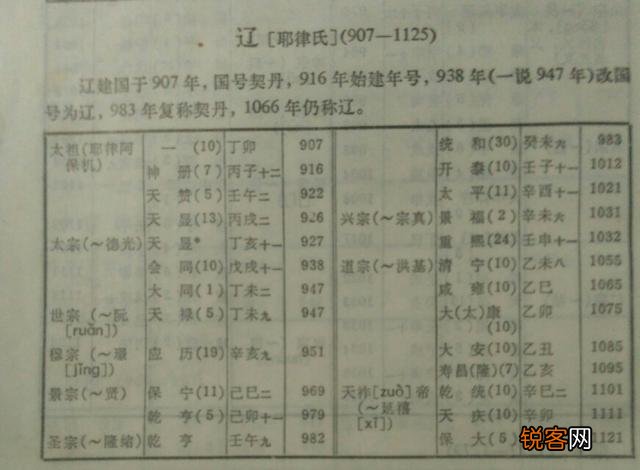 辽[耶律氏](907—1125)
辽建国于907年,国号契丹,916年始建年号,938年(一说947年)改国
号为辽,983年复称契丹,1066年仍称辽。
太祖(耶律阿 一(10) 丁卯 907
保机)
神册(7) 丙子十二 916
天赞(5) 壬午二 922
天显(13) 丙戌二 926
太宗(～德光) 天显* 丁亥十一 927
会同(10) 戊戌十一 938
大同(1) 丁未二 947
世宗(～阮 天禄(5) 丁未九 947
[ruǎn])
穆宗(～璟 应历(19) 辛亥九 951
[jǐng])
景宗(～贤) 保宁(11) 己巳二 969
乾亨(5) 己卯十一 979
圣宗(～隆绪) 乾亨 壬午九 982
统和(30) 癸未六 983
开泰(10) 壬子十一 1012
太平(11) 辛酉十一 1021
兴宗(～宗真) 景福(2) 辛未六 1031
重熙(24) 壬申十一 1032
道宗(～洪基) 清宁(10) 乙未八 1055
咸雍(10) 乙巳 1065
大(太)康 乙卯 1075
(10)
大安(10) 乙丑 1085
寿昌(隆)(7) 乙亥 1095
天祚[zuò]帝 乾统(10) 辛巳二 1101
(～延禧 天庆(10) 辛卯 1111
[xǐ]) 保大(5 1121
锐客网